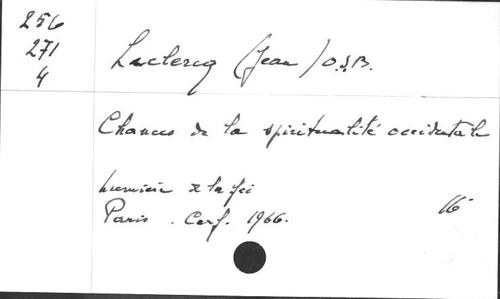 256
271
4
Leclercq (Jean) O.S.B.
Chances de la spiritualité occidentale
Lumière de la foi
Paris. Cerf. 1966.
16°